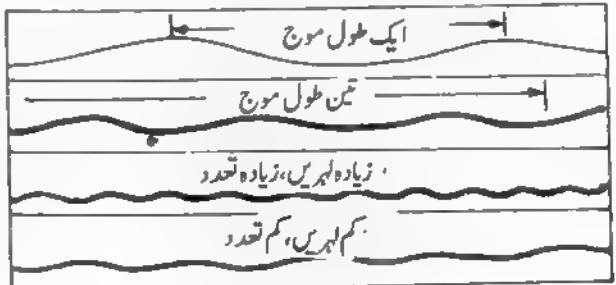 ایک طول موج
تین طول موج
زیادہ لہریں، زیادہ تعدد
کم لہریں، کم تعدد